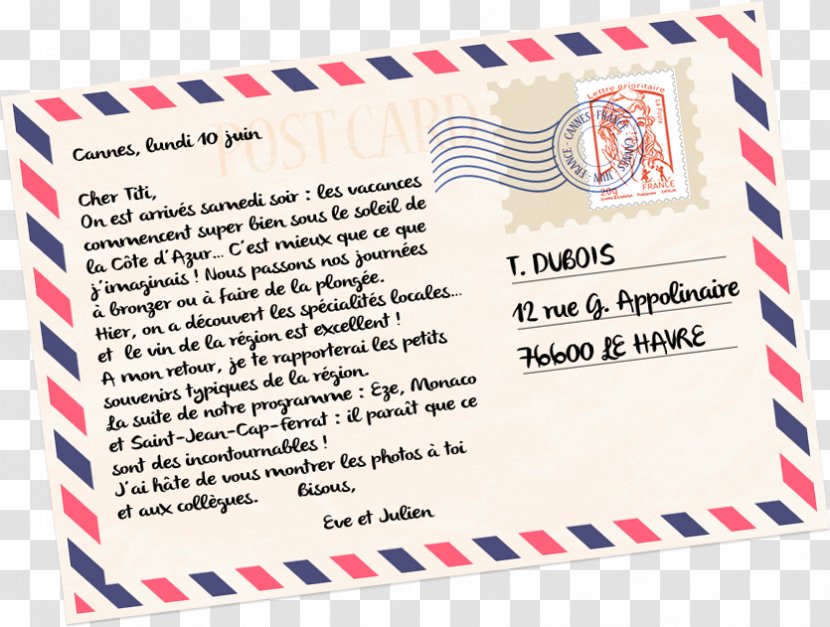 POST CARD
Cannes, lundi 10 juin
Cher Titi,
On est arrivés samedi soir : les vacances
commencent super bien sous le soleil de
la Côte d'Azur... C'est mieux que ce que
j'imaginais ! Nous passons nos journées
à bronzer ou à faire de la plongée.
Hier, on a découvert les spécialités locales...
et le vin de la région est excellent !
A mon retour, je te rapporterai les petits
souvenirs typiques de la région.
La suite de notre programme : Eze, Monaco
et Saint-Jean-Cap-Ferrat : il paraît que ce
sont des incontournables !
J'ai hâte de vous montrer les photos à toi
et aux collègues.
Bisous,
Eve et Julien
Lettre prioritaire
LA POSTE
FRANCE
20g
CANNES - FRANCE
CANNES
JUIN
FRANCE
T. DUBOIS
12 rue G. Appolinaire
76600 LE HAVRE